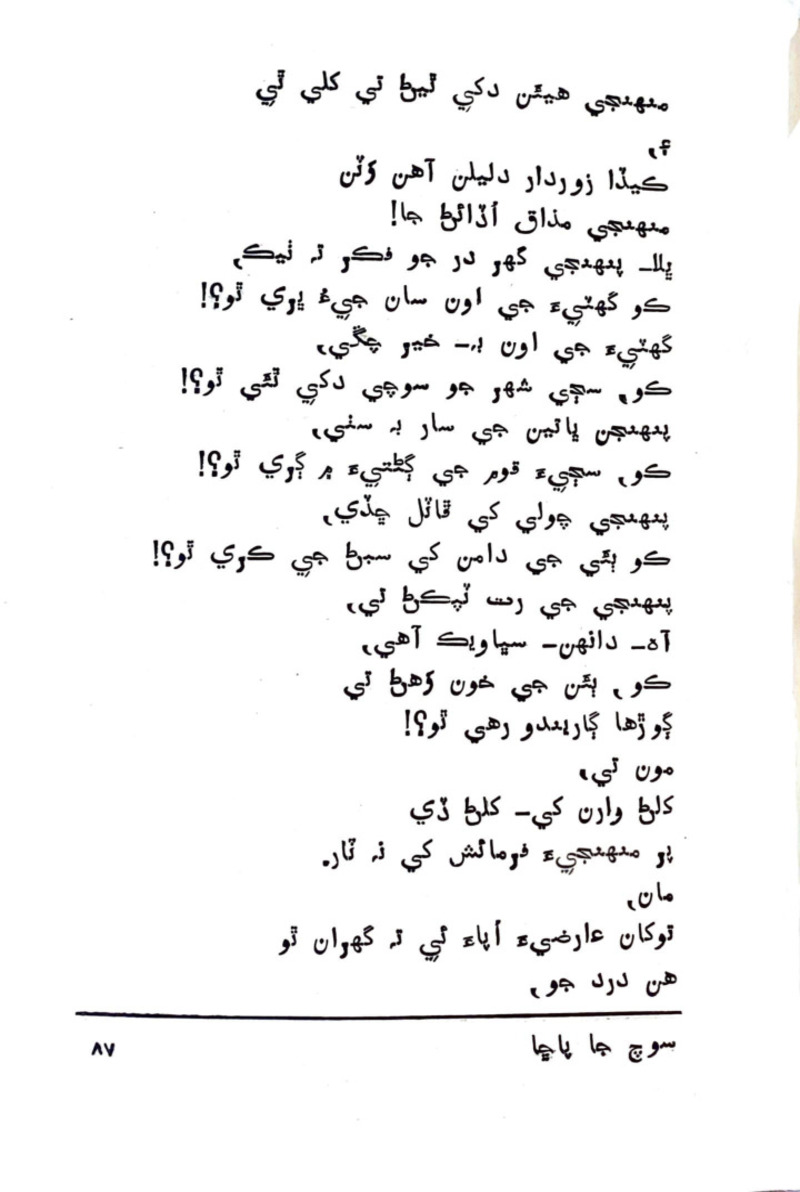 منهنجي هيئن دکي ٿيڻ تي کلي ٿي
۽،
ڪيڏا زوردار دليلن آهن وٽن
منهنجي مذاق اُڏائڻ جا!
ڀلا۔ پنهنجي گهر در جو فڪر ته ٺيڪ،
ڪو گهٽيءَ جي اون سان جيءُ ڀري ٿو؟!
گهٽيءَ جي اون بہ۔ خير چڱي،
ڪو، سڄي شهر جو سوچي دکي ٿئي ٿو؟!
پنهنجن ڀاتين جي سار بہ سٺي،
ڪو، سڄيءَ قوم جي ڳڻتيءَ ۾ ڳري ٿو؟!
پنهنجي چولي کي ڦاٽل ڇڏي،
ڪو ٻئي جي دامن کي سبڻ جي ڪري ٿو؟!
پنهنجي جي رت ٽپڪڻ تي،
آه۔ دانهن۔ سڀاويڪ آهي،
ڪو، ٻئن جي خون وهڻ تي
ڳوڙها ڳاريندو رهي ٿو؟!
مون تي،
کلڻ وارن کي۔ کلڻ ڏي
پر منهنجيءَ فرمائش کي نہ ٽار.
مان،
توکان عارضيءَ اُپاءَ ئي تہ گهران ٿو
هن درد جو،
سوچ جا پاڇا
۸۷